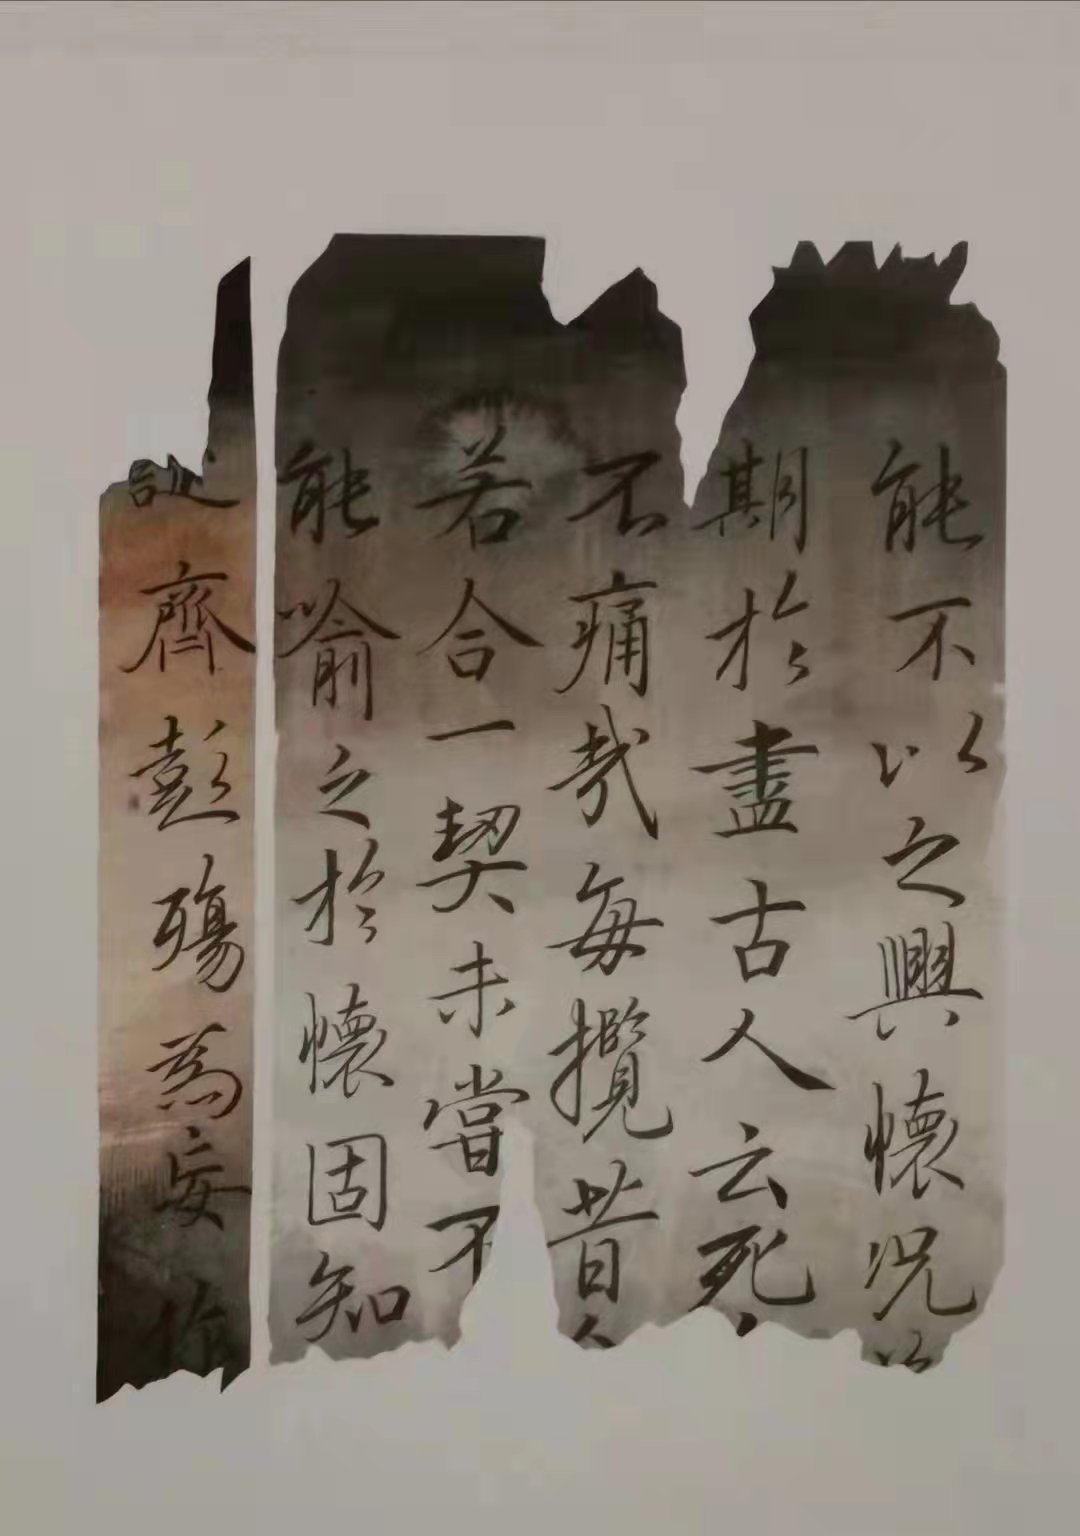 能不以之興懷況
期於盡古人云死
不痛哉每攬昔
若合一契未嘗不
能喻之於懷固知
誕齊彭殤為妄作